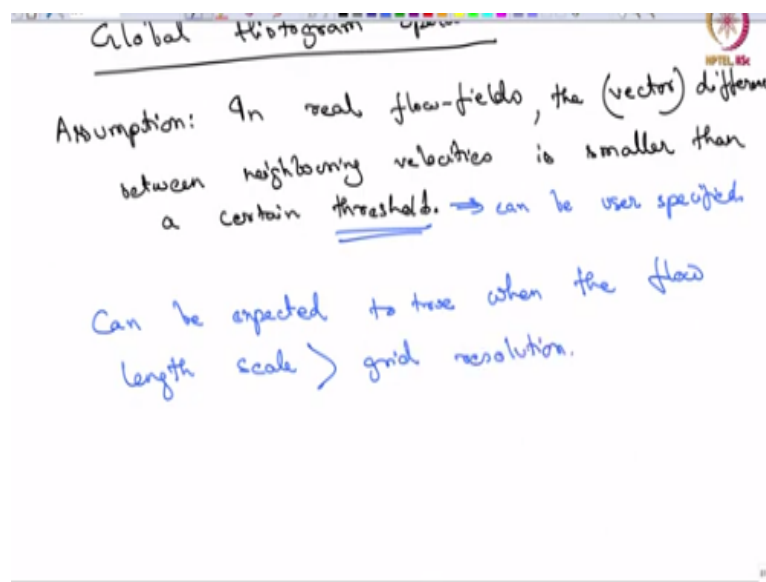 Global Histogram
NPTEL, IISc
Assumption: In real flow-fields, the (vector) differen
between neighbouring velocities is smaller than
a certain threshold. ⇒ can be user specified.
Can be expected to true when the flow
length scale > grid resolution.